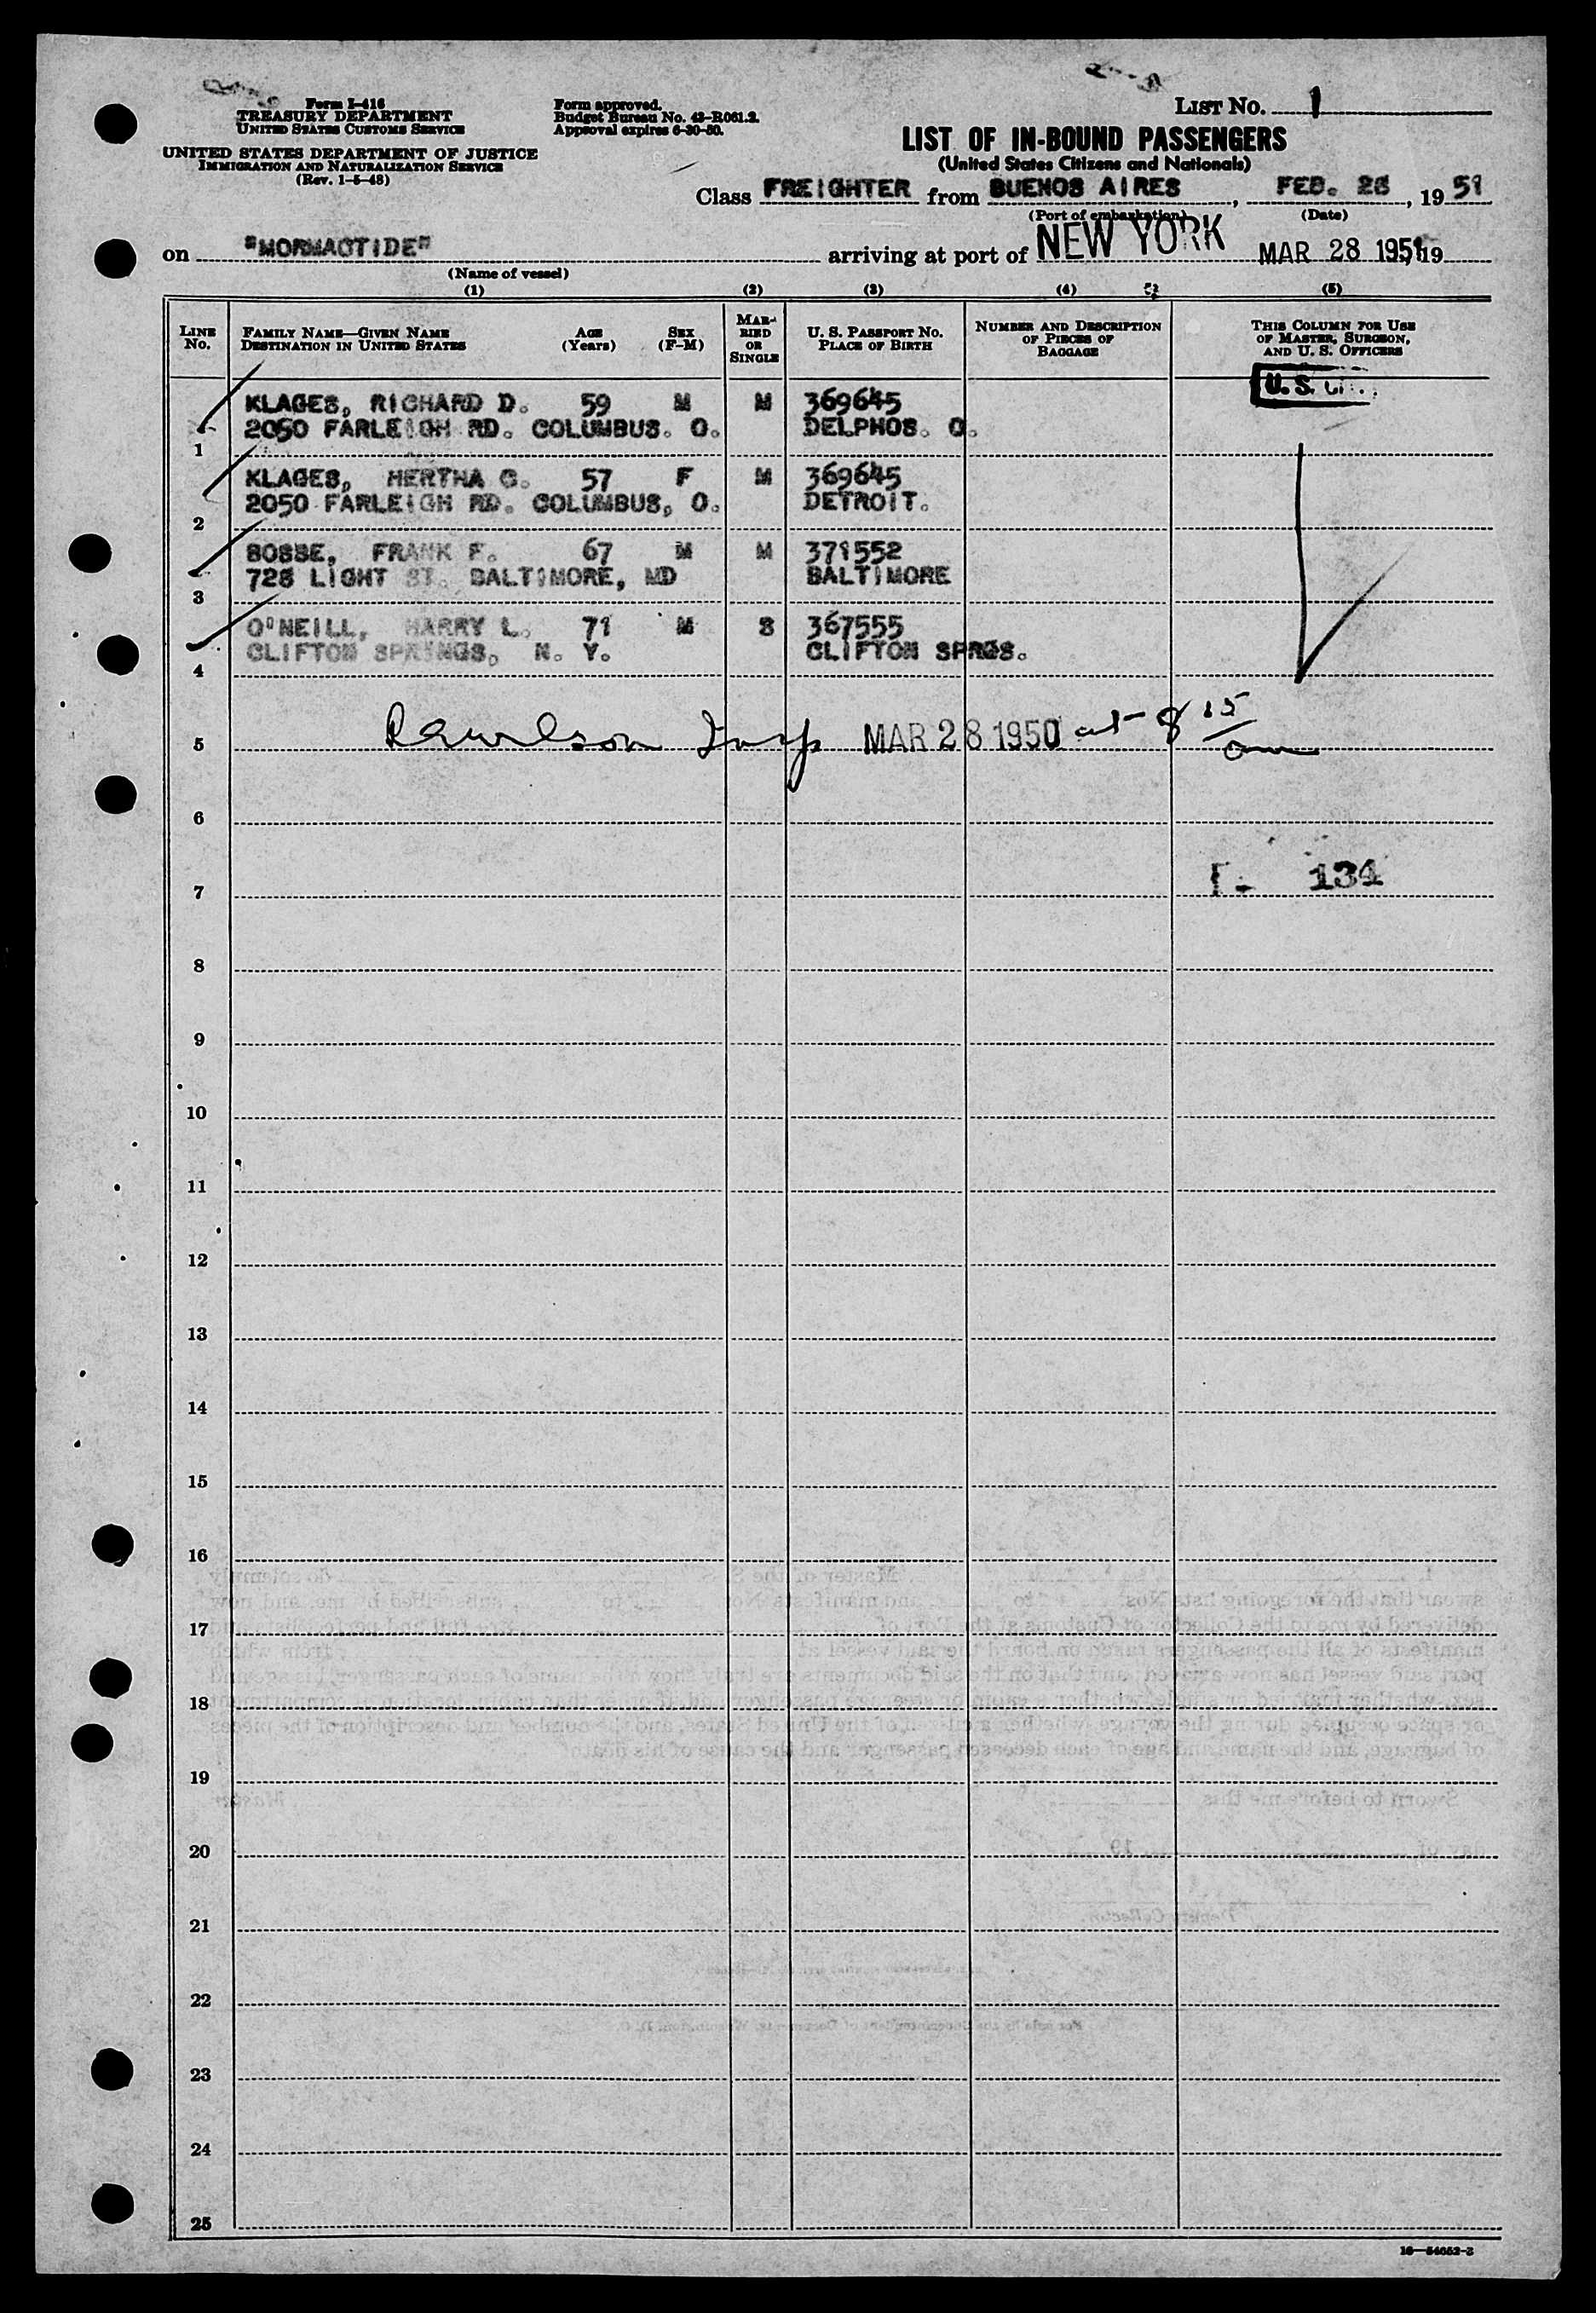 Form I-416
TREASURY DEPARTMENT
UNITED STATES CUSTOMS SERVICE
UNITED STATES DEPARTMENT OF JUSTICE
IMMIGRATION AND NATURALIZATION SERVICE
(Rev. 1-5-48)
Form approved.
Budget Bureau No. 43-R061.2.
Approval expires 6-30-50.
LIST NO. 1
LIST OF IN-BOUND PASSENGERS
(United States Citizens and Nationals)
Class FREIGHTER from BUENOS AIRES, FEB. 26, 1951
(Port of embarkation) (Date)
on "MORMACTIDE" arriving at port of NEW YORK MAR 28 1951 19
(Name of vessel)
(1) (2) (3) (4) (5)
LINE NO. FAMILY NAME—GIVEN NAME DESTINATION IN UNITED STATES AGE (Years) SEX (F-M) MARRIED OR SINGLE U. S. PASSPORT NO. PLACE OF BIRTH NUMBER AND DESCRIPTION OF PIECES OF BAGGAGE THIS COLUMN FOR USE OF MASTER, SURGEON, AND U. S. OFFICERS
U.S.
KLAGES, RICHARD D. 59 M M 369645
1 2050 FARLEIGH RD. COLUMBUS. O. DELPHOS. O.
KLAGES, HERTHA G. 57 F M 369645
2 2050 FARLEIGH RD. COLUMBUS, O. DETROIT.
BOSSE, FRANK F. 67 M M 371552
3 728 LIGHT ST. BALTIMORE, MD BALTIMORE
O'NEILL, HARRY L. 71 M S 367555
4 CLIFTON SPRINGS, N. Y. CLIFTON SPRGS.
5 Insp MAR 28 1950 at 8 15 am
6
7 134
8
9
10
11
12
13
14
15
16
17
18
19
20
21
22
23
24
25